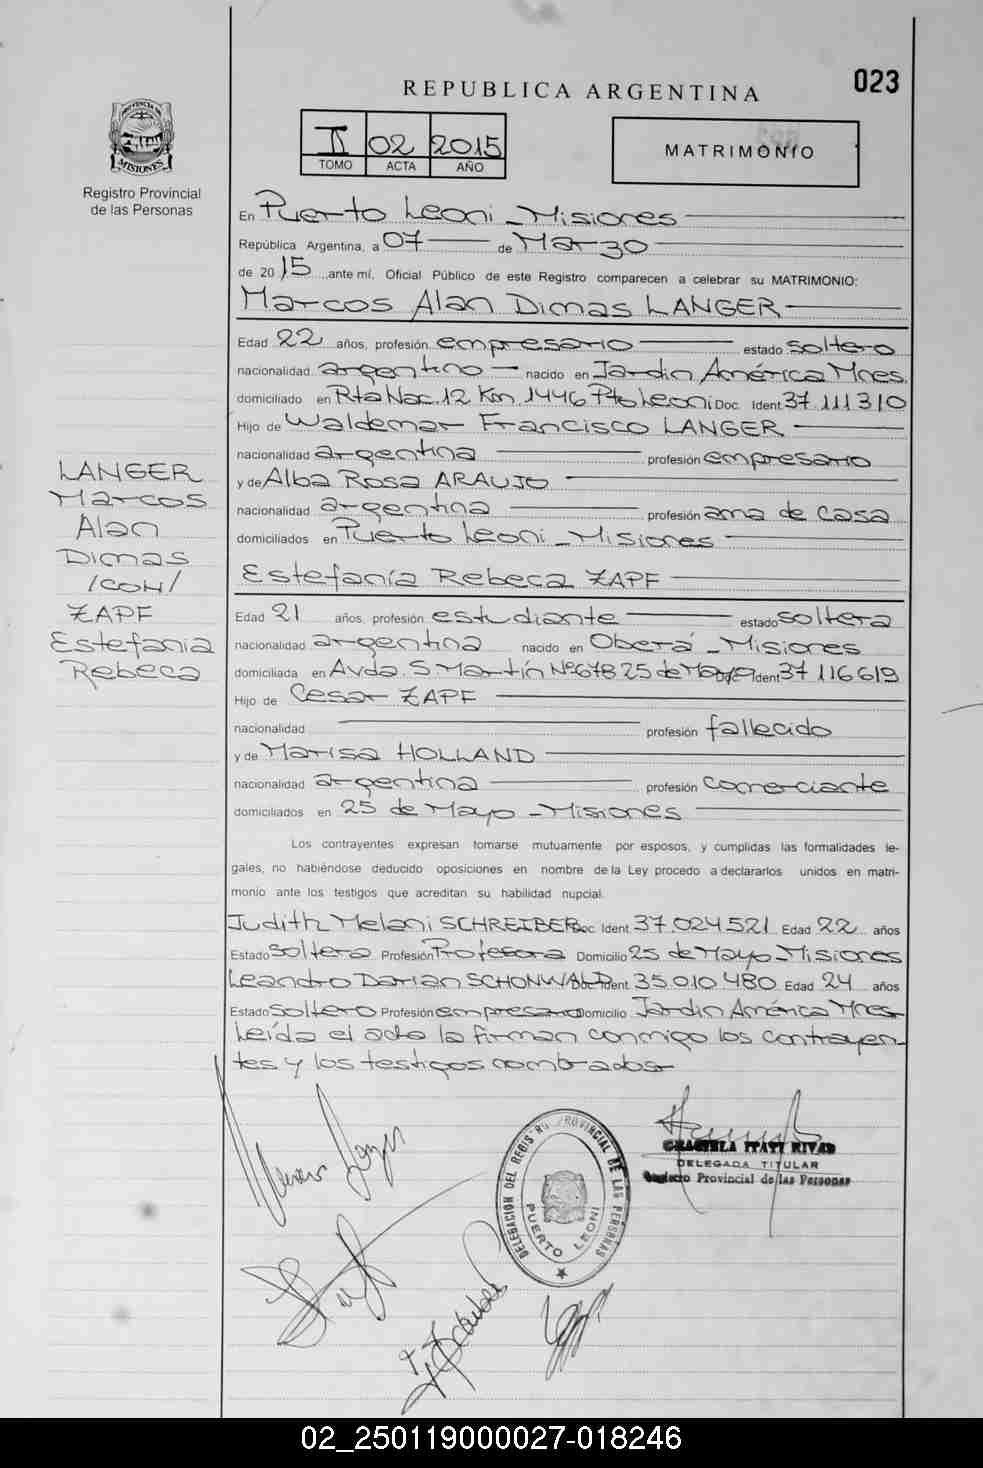 023
REPUBLICA ARGENTINA
II 02 2015
TOMO ACTA AÑO
MATRIMONIO
PROVINCIA DE
MISIONES
Registro Provincial
de las Personas
En Puerto Leoni _ Misiones
República Argentina, a 07 de Marzo
de 2015 ante mí, Oficial Público de este Registro comparecen a celebrar su MATRIMONIO:
Marcos Alan Dimas LANGER
Edad 22 años, profesión empresario estado soltero
nacionalidad argentino nacido en Jardín América Mnes.
domiciliado en Rta Nac. 12 Km. 1446 Pto Leoni Doc. Ident 37.111310
Hijo de Waldemar Francisco LANGER
nacionalidad argentina profesión empresario
y de Alba Rosa ARAUJO
nacionalidad argentina profesión ama de casa
domiciliados en Puerto Leoni _ Misiones
LANGER
Marcos
Alan
Dimas
/CON/
ZAPF
Estefanía
Rebeca
Estefanía Rebeca ZAPF
Edad 21 años, profesión estudiante estado soltera
nacionalidad argentina nacido en Oberá _ Misiones
domiciliada en Avda. S. Martín Nº 678 25 de Mayo Ident 37 116619
Hijo de Cesar ZAPF
nacionalidad profesión fallecido
y de Marisa HOLLAND
nacionalidad argentina profesión comerciante
domiciliados en 25 de Mayo _ Misiones
Los contrayentes expresan tomarse mutuamente por esposos, y cumplidas las formalidades le-
gales, no habiéndose deducido oposiciones en nombre de la Ley procedo a declararlos unidos en matri-
monio ante los testigos que acreditan su habilidad nupcial.
Judith Melani SCHREIBER Doc. Ident 37.024.521 Edad 22 años
Estado soltera Profesión Profesora Domicilio 25 de Mayo _ Misiones
Leandro Darian SCHONWALD Doc. Ident 35.010.480 Edad 24 años
Estado soltero Profesión empresario Domicilio Jardín América Mnes
Leída el acta la firman conmigo los contrayen-
tes y los testigos nombrados
DELEGACION DEL REGISTRO PROVINCIAL DE LAS PERSONAS
PUERTO LEONI
GRACIELA ITATI RIVAS
DELEGADA TITULAR
Registro Provincial de las Personas
02_250119000027-018246